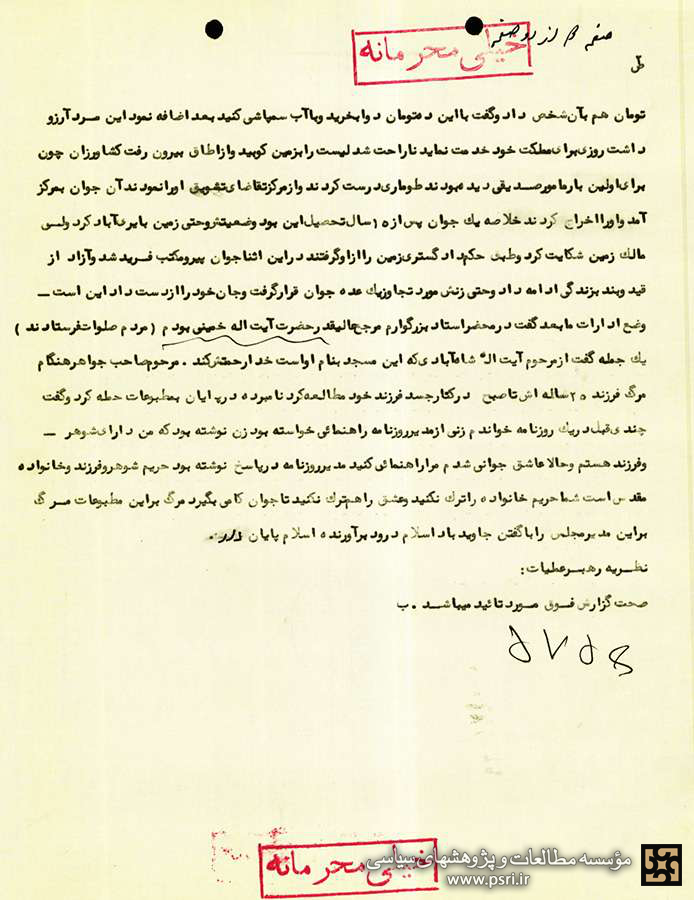 صفحه ۳ از دو صفحه
خیلی محرمانه
تومان هم بآن شخص داد وگفت با این ده تومان دوا بخرید وباآب سمپاشی کنید بعد اضافه نمود این مرد آرزو
داشت روزی برای مملکت خود خدمت نماید ناراحت شد لیست را بزمین کوبید واز اطاق بیرون رفت کشاورزان چون
برای اولین بار مامور صدیقی دیده بودند طوماری درست کردند واز مرکز تقاضای تشویق اورا نمودند آن جوان بمرکز
آمد و اورا اخراج کردند خلاصه یک جوان پس از ۱۵ سال تحصیل این بود وضعیتش وحتی زمین بایری آباد کرد ولی
مالک زمین شکایت کرد وطبق حکم دادگستری زمین را از او گرفتند در این اثنا جوان پیرو مکتب فرید شد وآزاد از
قید وبند بزندگی ادامه داد وحتی زنش مورد تجاوز یک عده جوان قرار گرفت وجان خود را از دست داد این است ــ
وضع ادارات ما بعد گفت در محضر استاد بزرگوارم مرجع عالیقدر حضرت آیت اله خمینی بودم ( مردم صلوات فرستادند )
یک جمله گفت از مرحوم آیت اله شاه آبادی که این مسجد بنام اواست خدا رحمتش کند . مرحوم صاحب جواهر هنگام
مرگ فرزند ۲۰ ساله اش تا صبح در کنار جسد فرزند خود مطالعه کرد نامبرده در پایان بمطبوعات حمله کرد وگفت
چندی قبل در یک روزنامه خواندم زنی از مدیر روزنامه راهنمائی خواسته بود زن نوشته بود که من دارای شوهر ــ
وفرزند هستم وحالا عاشق جوانی شدم مرا راهنمائی کنید مدیر روزنامه در پاسخ نوشته بود حریم شوهر وفرزند وخانواده
مقدس است شما حریم خانواده را ترک نکنید وعشق را هم ترک نکنید تا جوان کامی بگیرد مرگ بر این مطبوعات مرگ
بر این مدیر مجلس را با گفتن جاوید باد اسلام درود بر آورنده اسلام پایان داد .
نظریه رهبر عملیات :
صحت گزارش فوق مورد تائید میباشد . ب
خیلی محرمانه
مؤسسه مطالعات و پژوهشهای سیاسی
www.psri.ir